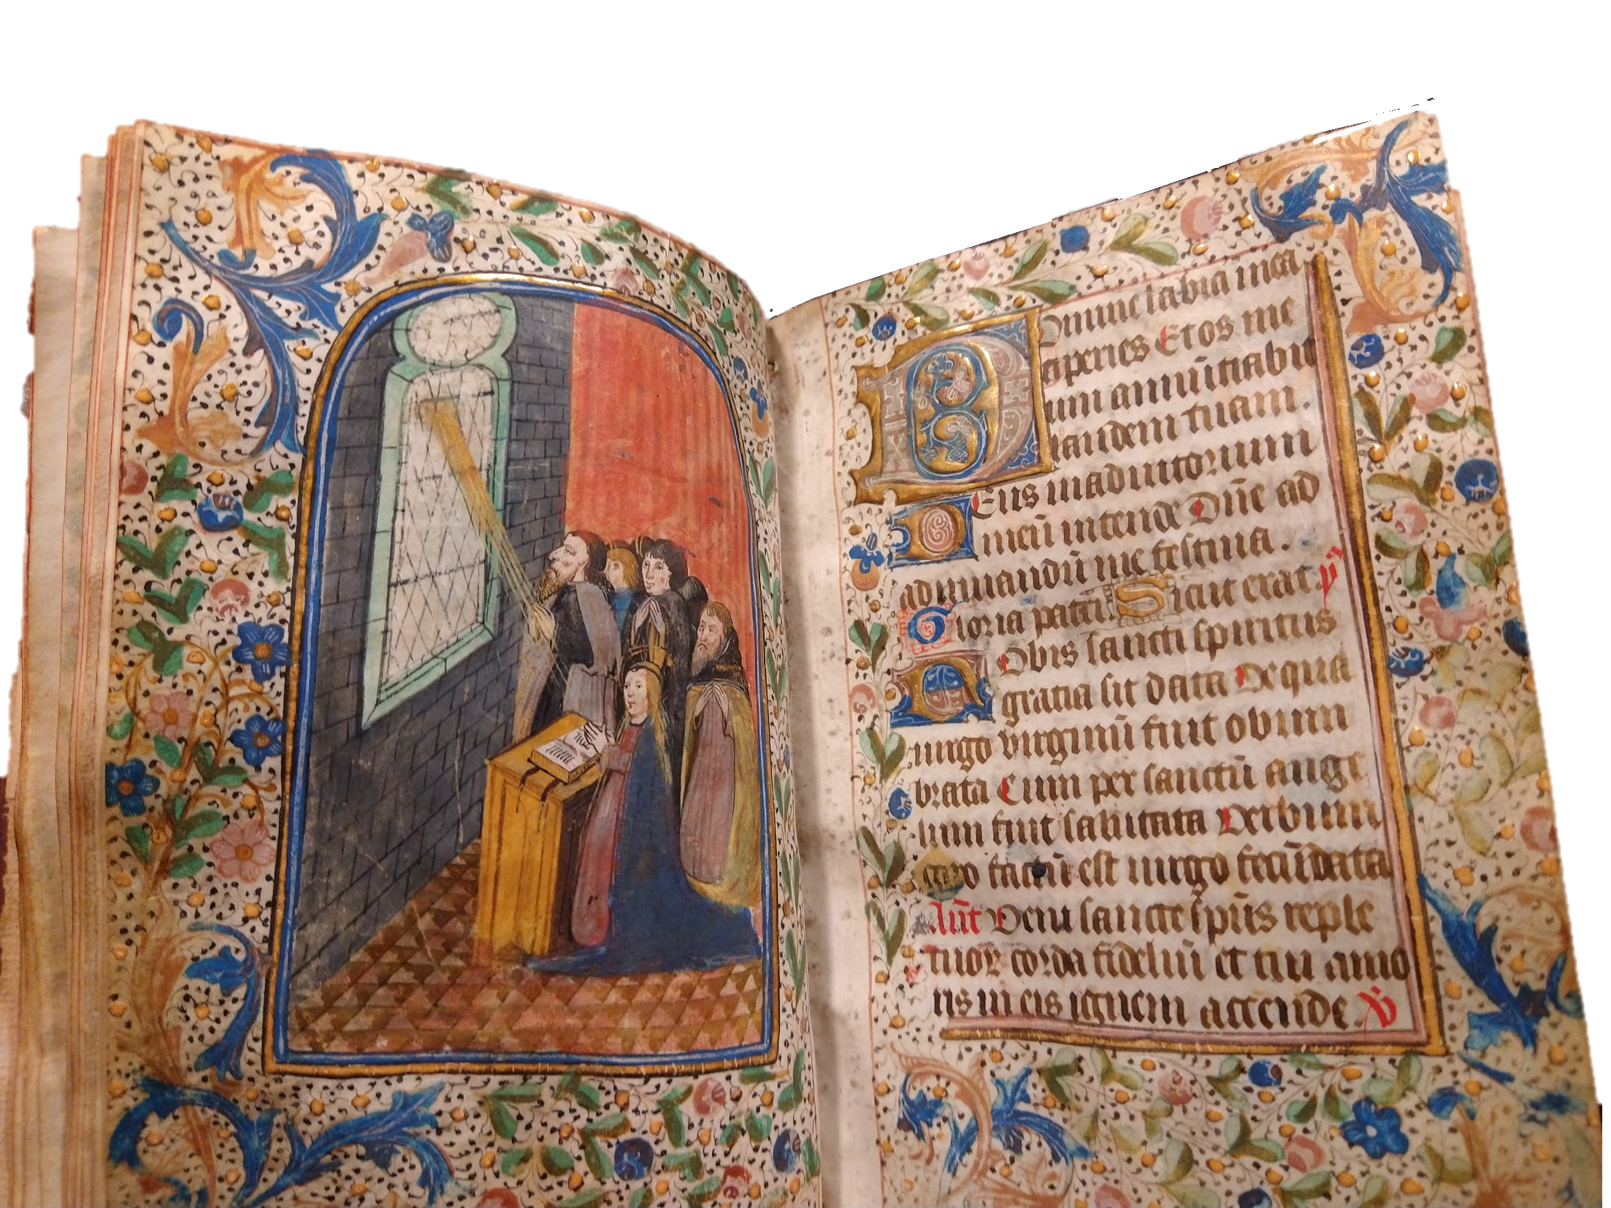 Domine labia mea
aperies Et os me
um annūtiabit
laudem tuam.
Deus in adiutorium
meū intende Dn̄e ad
adiuuandū me festina.
Gloria patri Sicut erat. p̄
Nobis sancti spiritus
gratia sit data De qua
uirgo virginū fuit obum
brata Cum per sanctū ange
lum fuit salutata Verbum
caro factū est uirgo fecūdata
An̄t Veni sancte sp̄us reple
tuor corda fideliū et tui amo
ris in eis ignem accende. v̄